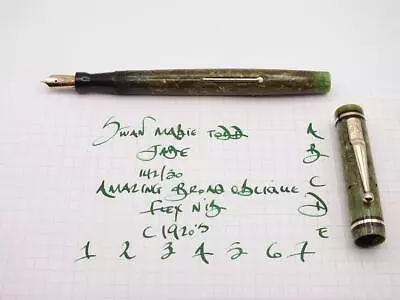 Swan Mabie Todd A
Jade B
142/50 C
Amazing Broad Oblique
Flex Nib D
C1920's E
1 2 3 4 5 6 7